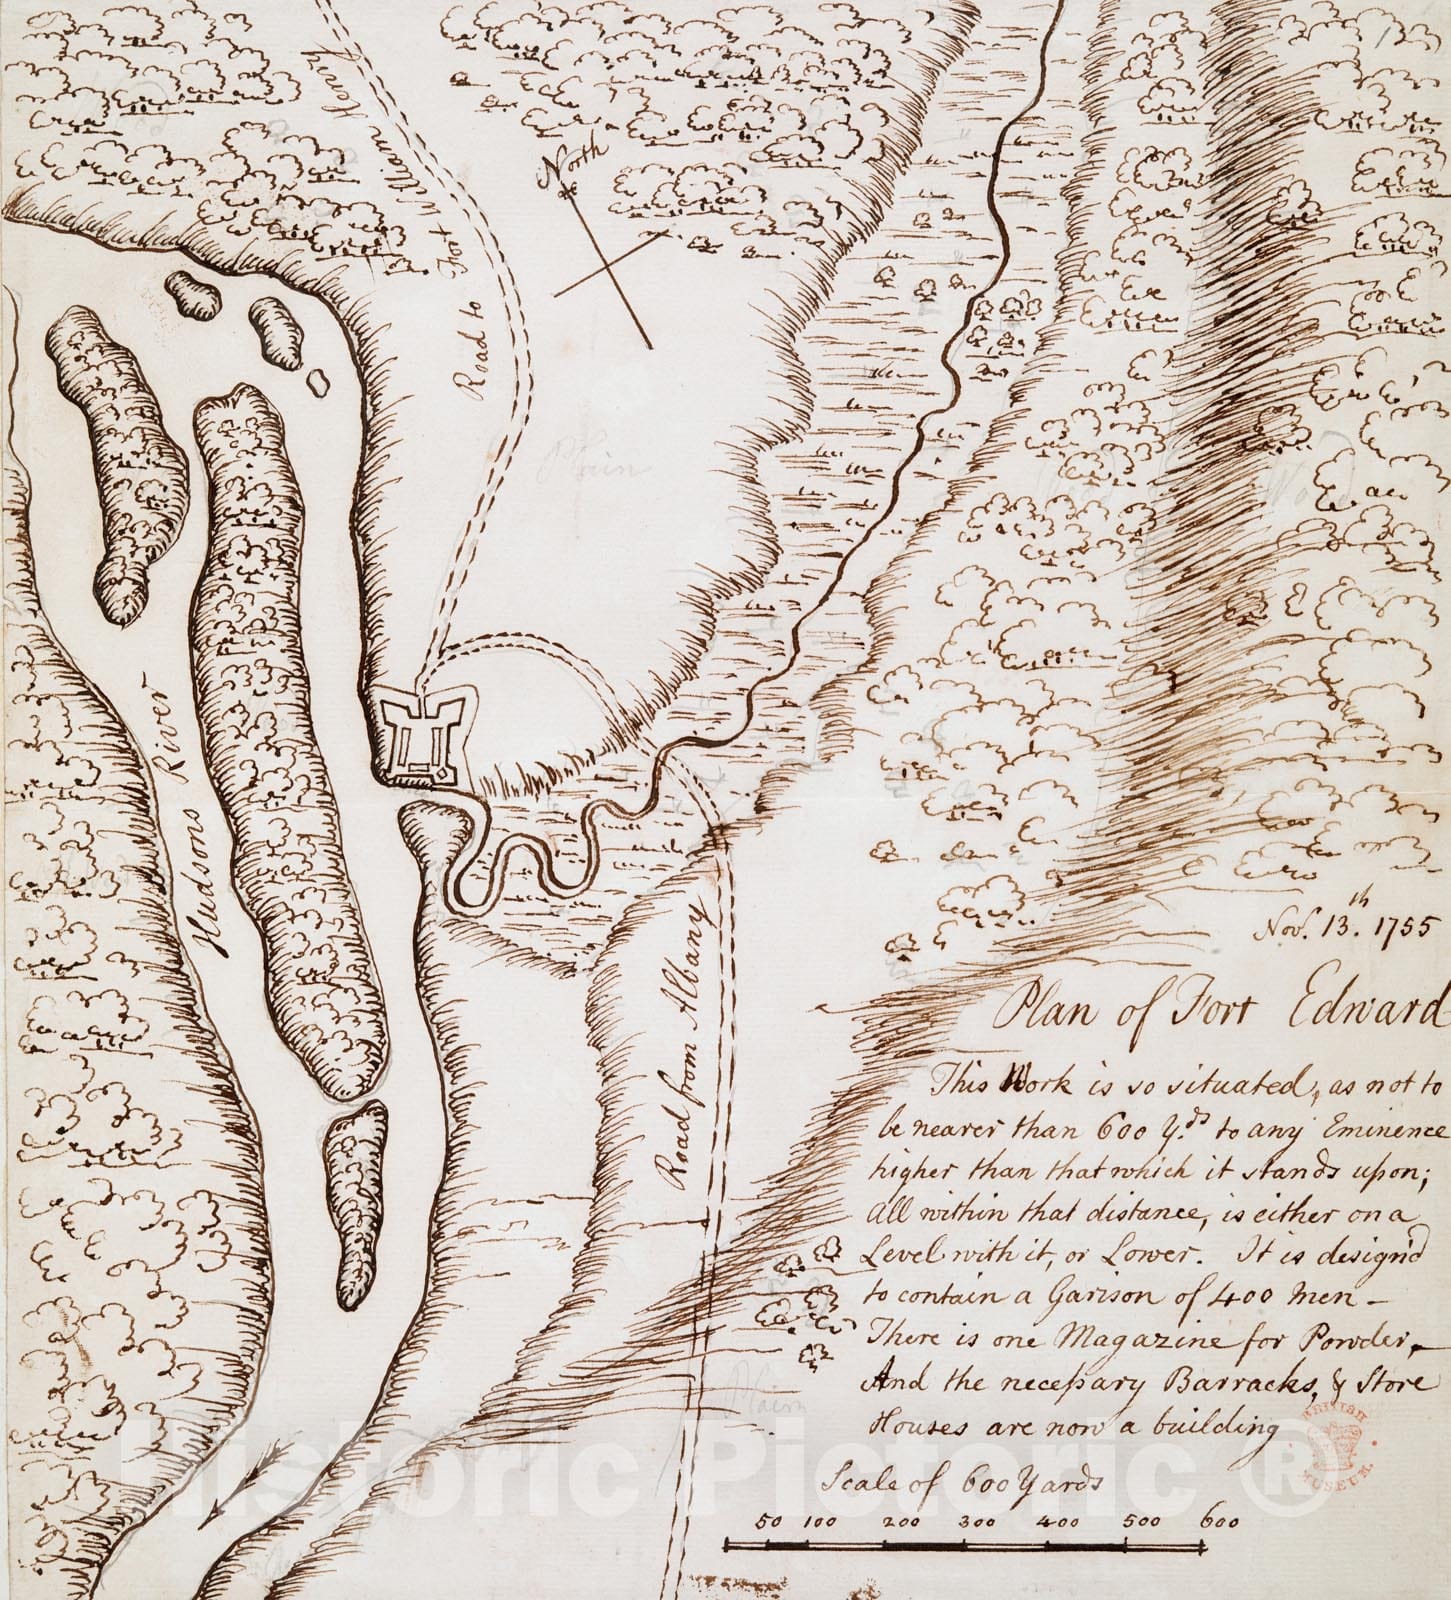 Road to Fort William Henry
North
Plain
Wood
Hudsons River
Road from Albany
Nov.r 13.th 1755
Plan of Fort Edward
This Work is so situated, as not to
be nearer than 600 Y.ds to any Eminence
higher than that which it stands upon;
all within that distance, is either on a
Level with it, or Lower. It is design'd
to contain a Garison of 400 Men –
There is one Magazine for Powder,
And the necessary Barracks, & Store
Houses are now a building
Plain
Scale of 600 Yards
50 100 200 300 400 500 600
BRITISH MUSEUM
Historic Pictoric ®